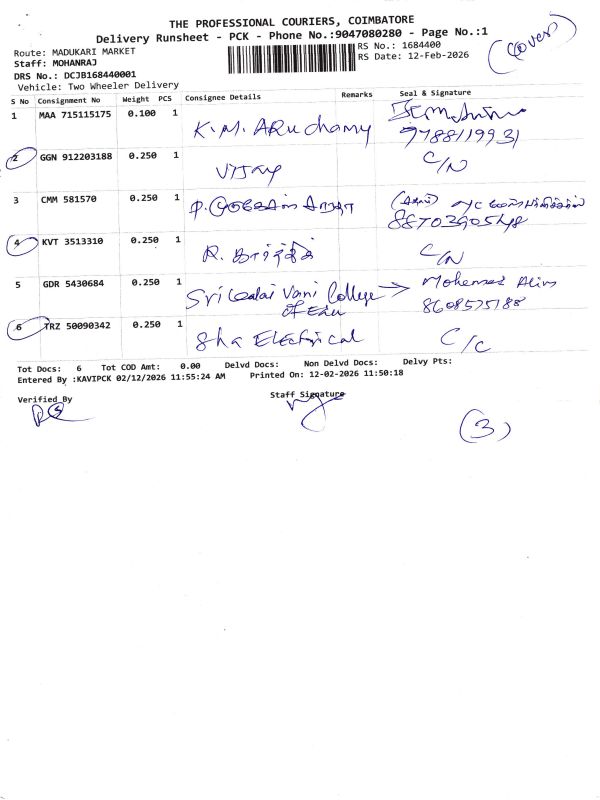 THE PROFESSIONAL COURIERS, COIMBATORE
Delivery Runsheet - PCK - Phone No.:9047080280 - Page No.:1
(cover)
Route: MADUKARI MARKET
RS No.: 1684400
Staff: MOHANRAJ
RS Date: 12-Feb-2026
DRS No.: DCJB168440001
Vehicle: Two Wheeler Delivery
S No Consignment No Weight PCS Consignee Details Remarks Seal & Signature
1 MAA 715115175 0.100 1 K.M. ARuchamy
9788119931
2 GGN 912203188 0.250 1 Vijay C/N
3 CMM 581570 0.250 1
8870390548
4 KVT 3513310 0.250 1 R. C/N
5 GDR 5430684 0.250 1 Sri Kalai Vani College of Edu
8608575188
6 TRZ 50090342 0.250 1 Sha Electrical C/C
Tot Docs: 6 Tot COD Amt: 0.00 Delvd Docs: Non Delvd Docs: Delvy Pts:
Entered By :KAVIPCK 02/12/2026 11:55:24 AM Printed On: 12-02-2026 11:50:18
Verified By Staff Signature
(3)